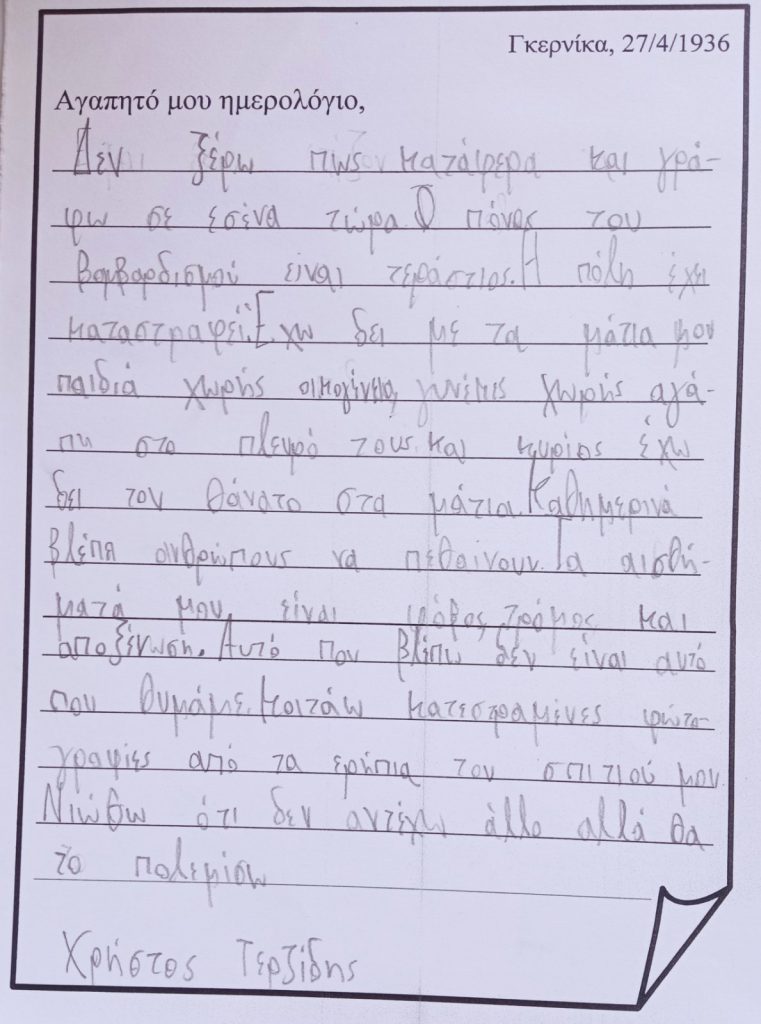 Γκερνίκα, 27/4/1936
Αγαπητό μου ημερολόγιο,
Δεν ξέρω πως κατάφερα και γρά-
φω σε εσένα τώρα. Ο πόνος του
βομβαρδισμού είναι τεράστιος. Η πόλη έχει
καταστραφεί. Έχω δει με τα μάτια μου
παιδιά χωρής οικογένεια, γυνέκες χωρής αγά-
πη στο πλευρό τους και κυρίως έχω
δει τον θάνατο στα μάτια. Καθημερινά
βλέπω ανθρώπους να πεθαίνουν. Τα αισθή-
ματά μου είναι φόβος, τρόμος και
αποξένωση. Αυτό που βλέπω δεν είναι αυτό
που θυμάμε. Κοιτάω κατεστραμένες φωτο-
γραφίες από τα ερήπια του σπιτιού μου
Νιώθω ότι δεν αντέχω άλλο αλλά θα
το πολεμίσω
Χρήστος Τερζίδης